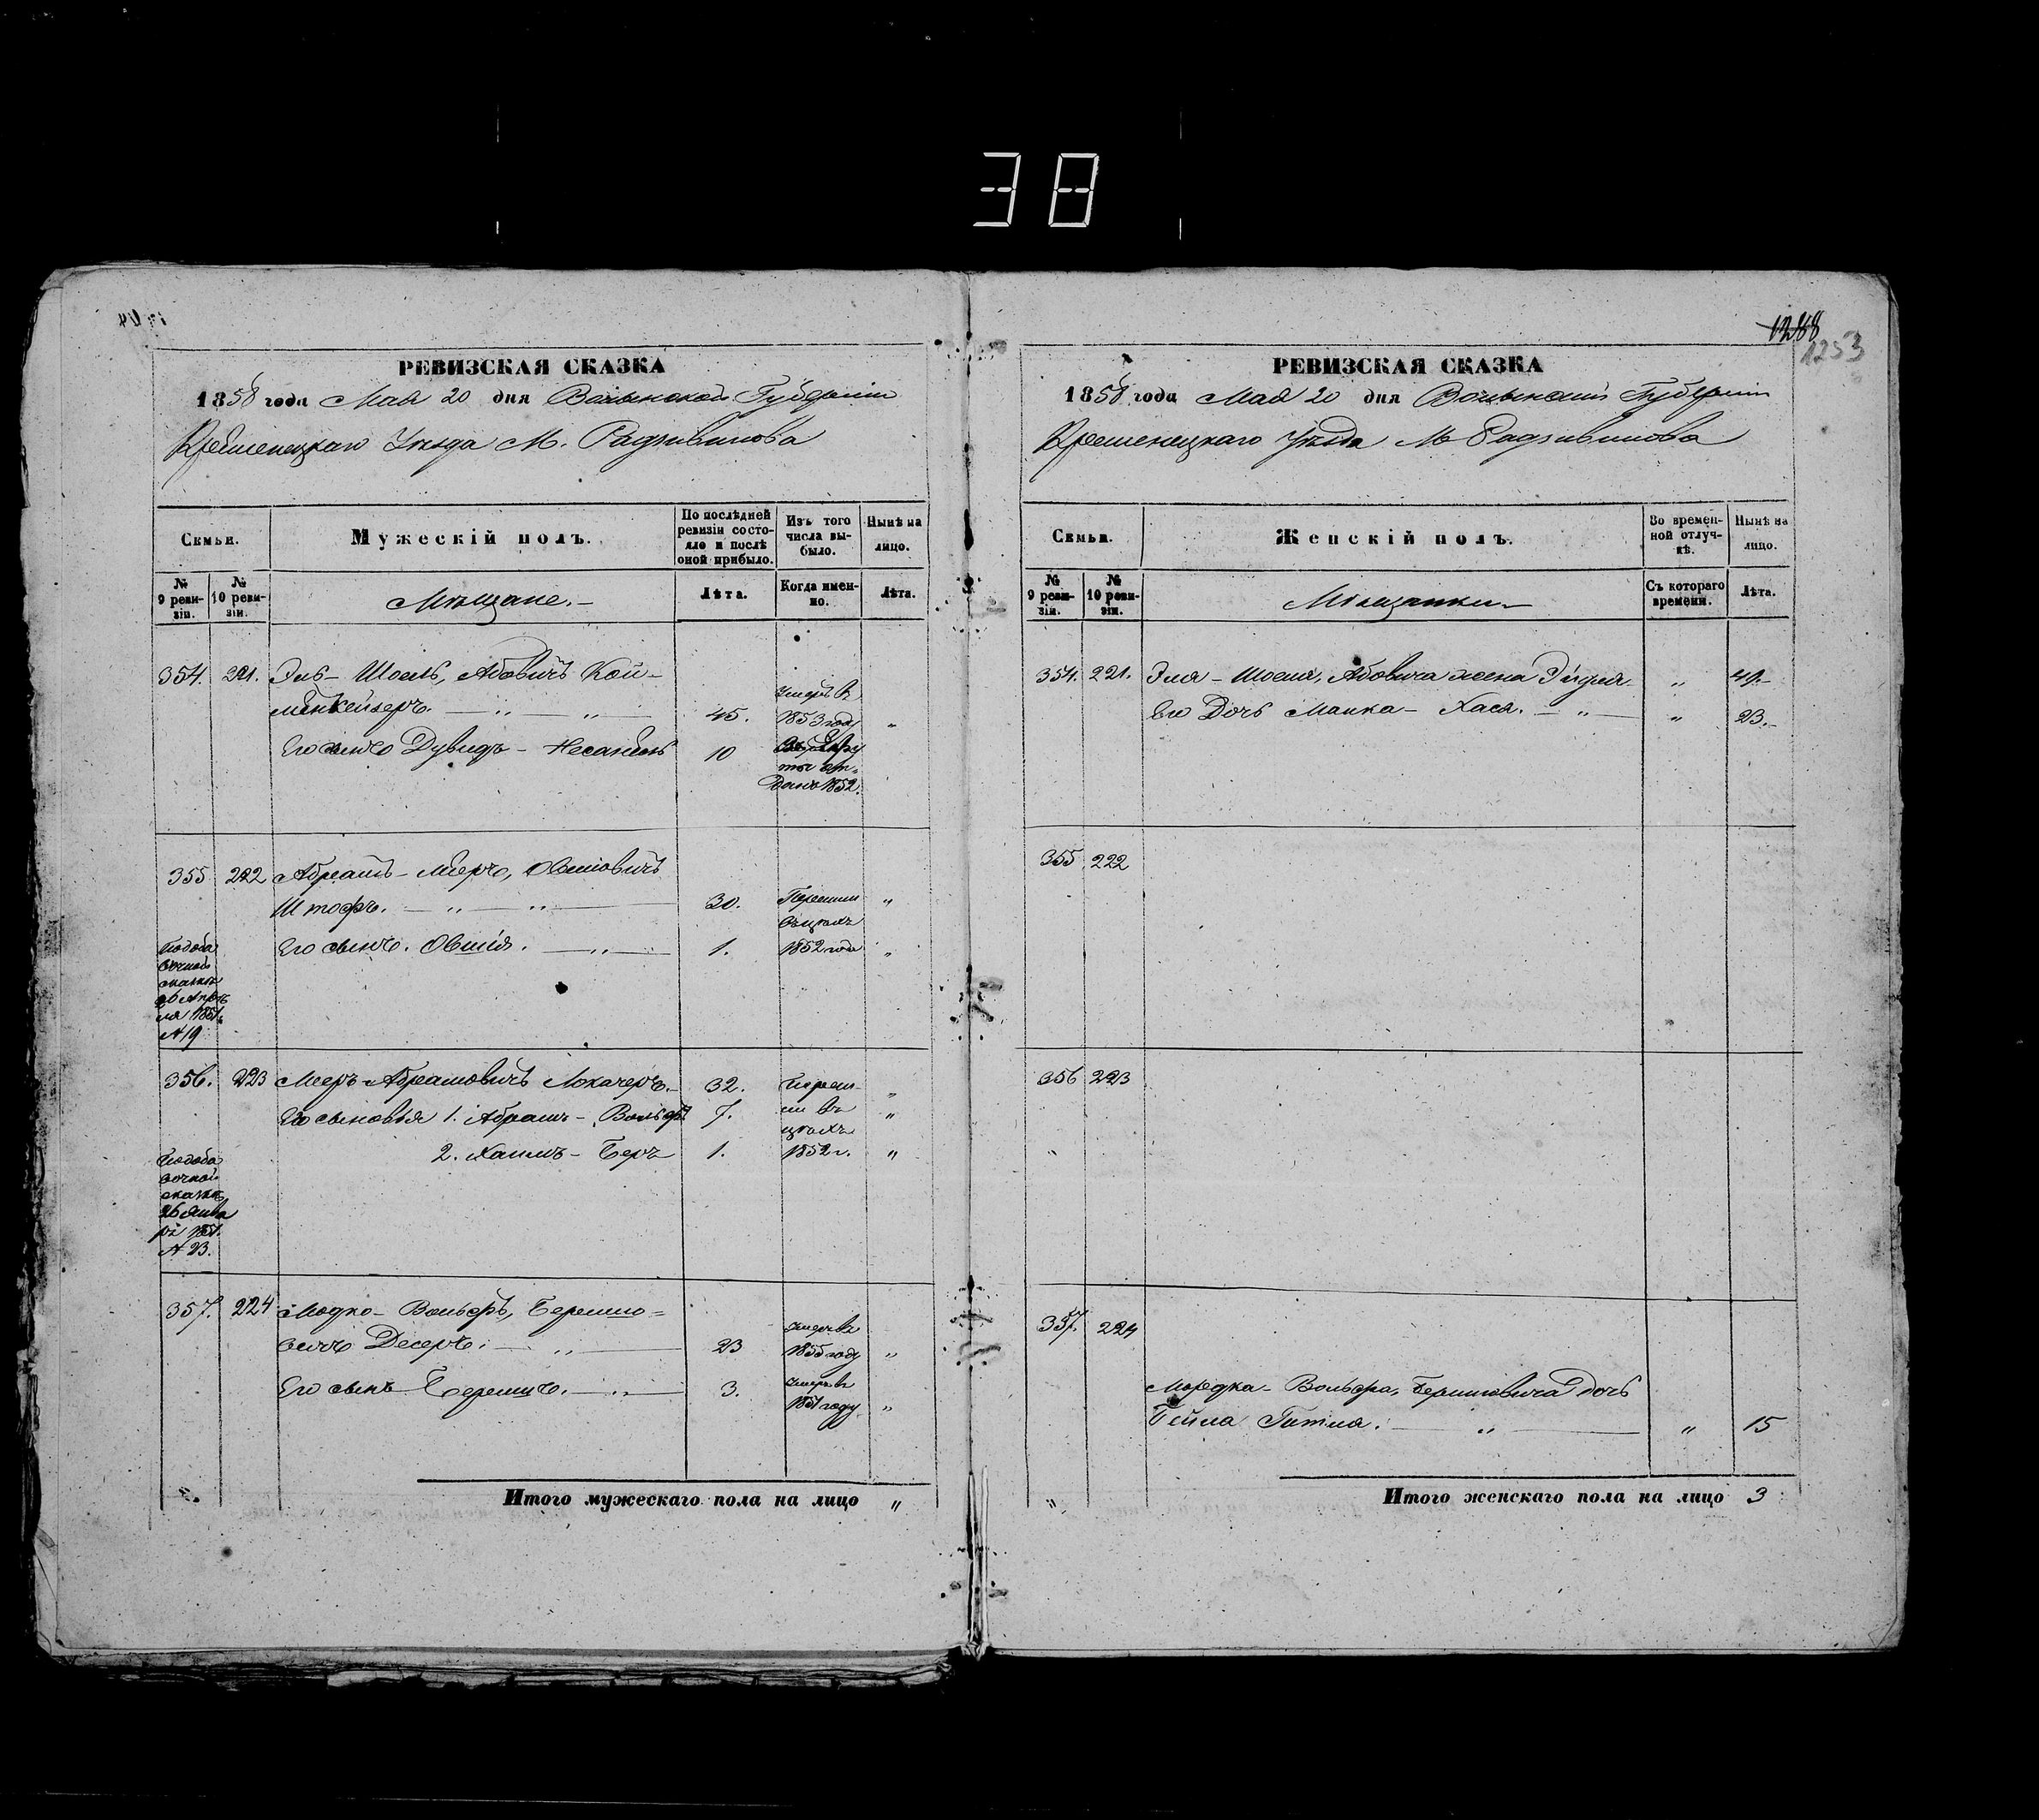 38
1288
1253
РЕВИЗСКАЯ СКАЗКА
1858 года Мая 20 дня Волынской Губерніи
Кременецкаго Уезда М. Радзивилова
Семьи.
Мужескій полъ.
По послѣдней ревизіи состояло и послѣ оной прибыло.
Изъ того числа выбыло.
Нынѣ на лицо.
№ 9 ревизіи.
№ 10 ревизіи.
Мѣщане.
Лѣта.
Когда именно.
Лѣта.
354. 221. Эль - Шоель, Абовичъ
45. умеръ въ 1853 году "
Его сынъ Дувидъ - 10 1852.
355 222 Абрамъ - Меръ, Овшіовичъ
Штофъ. 30. "
Его сынъ. Овшія. 1. 1852 года "
сказкѣ
26 Апрѣ
ля 1851.
№ 19
356. 223 Меръ Абрамовичъ Локачеръ. 32. "
Его сыновья 1. Абрамъ - Вольфъ 7. "
2. Хаимъ - Беръ 1. 1852 г. "
сказкѣ
26 Янва
ря 1851.
№ 23.
357. 224 Модко - Вольфъ, Бершио=
вичъ Десеръ. 23 умеръ въ 1855 году "
Его сынъ Бершъ. 3. умеръ въ 1851 году "
Итого мужескаго пола на лицо "
РЕВИЗСКАЯ СКАЗКА
1858 года Мая 20 дня Волынской Губерніи
Кременецкаго Уезда М. Радзивилова
Семьи.
Женскій полъ.
Во временной отлучкѣ.
Нынѣ на лицо.
№ 9 ревизіи.
№ 10 ревизіи.
Мѣщанки
Съ котораго времени.
Лѣта.
354. 221. Эля - Шоеля, Абовича жена " 49.
Его Дочь Малка - Хася. " " 23.
355 222
356 223
"
357. 224
Мордка - Вольфа, Бершовича дочь
Бейла Гитля. " " 15
Итого женскаго пола на лицо 3